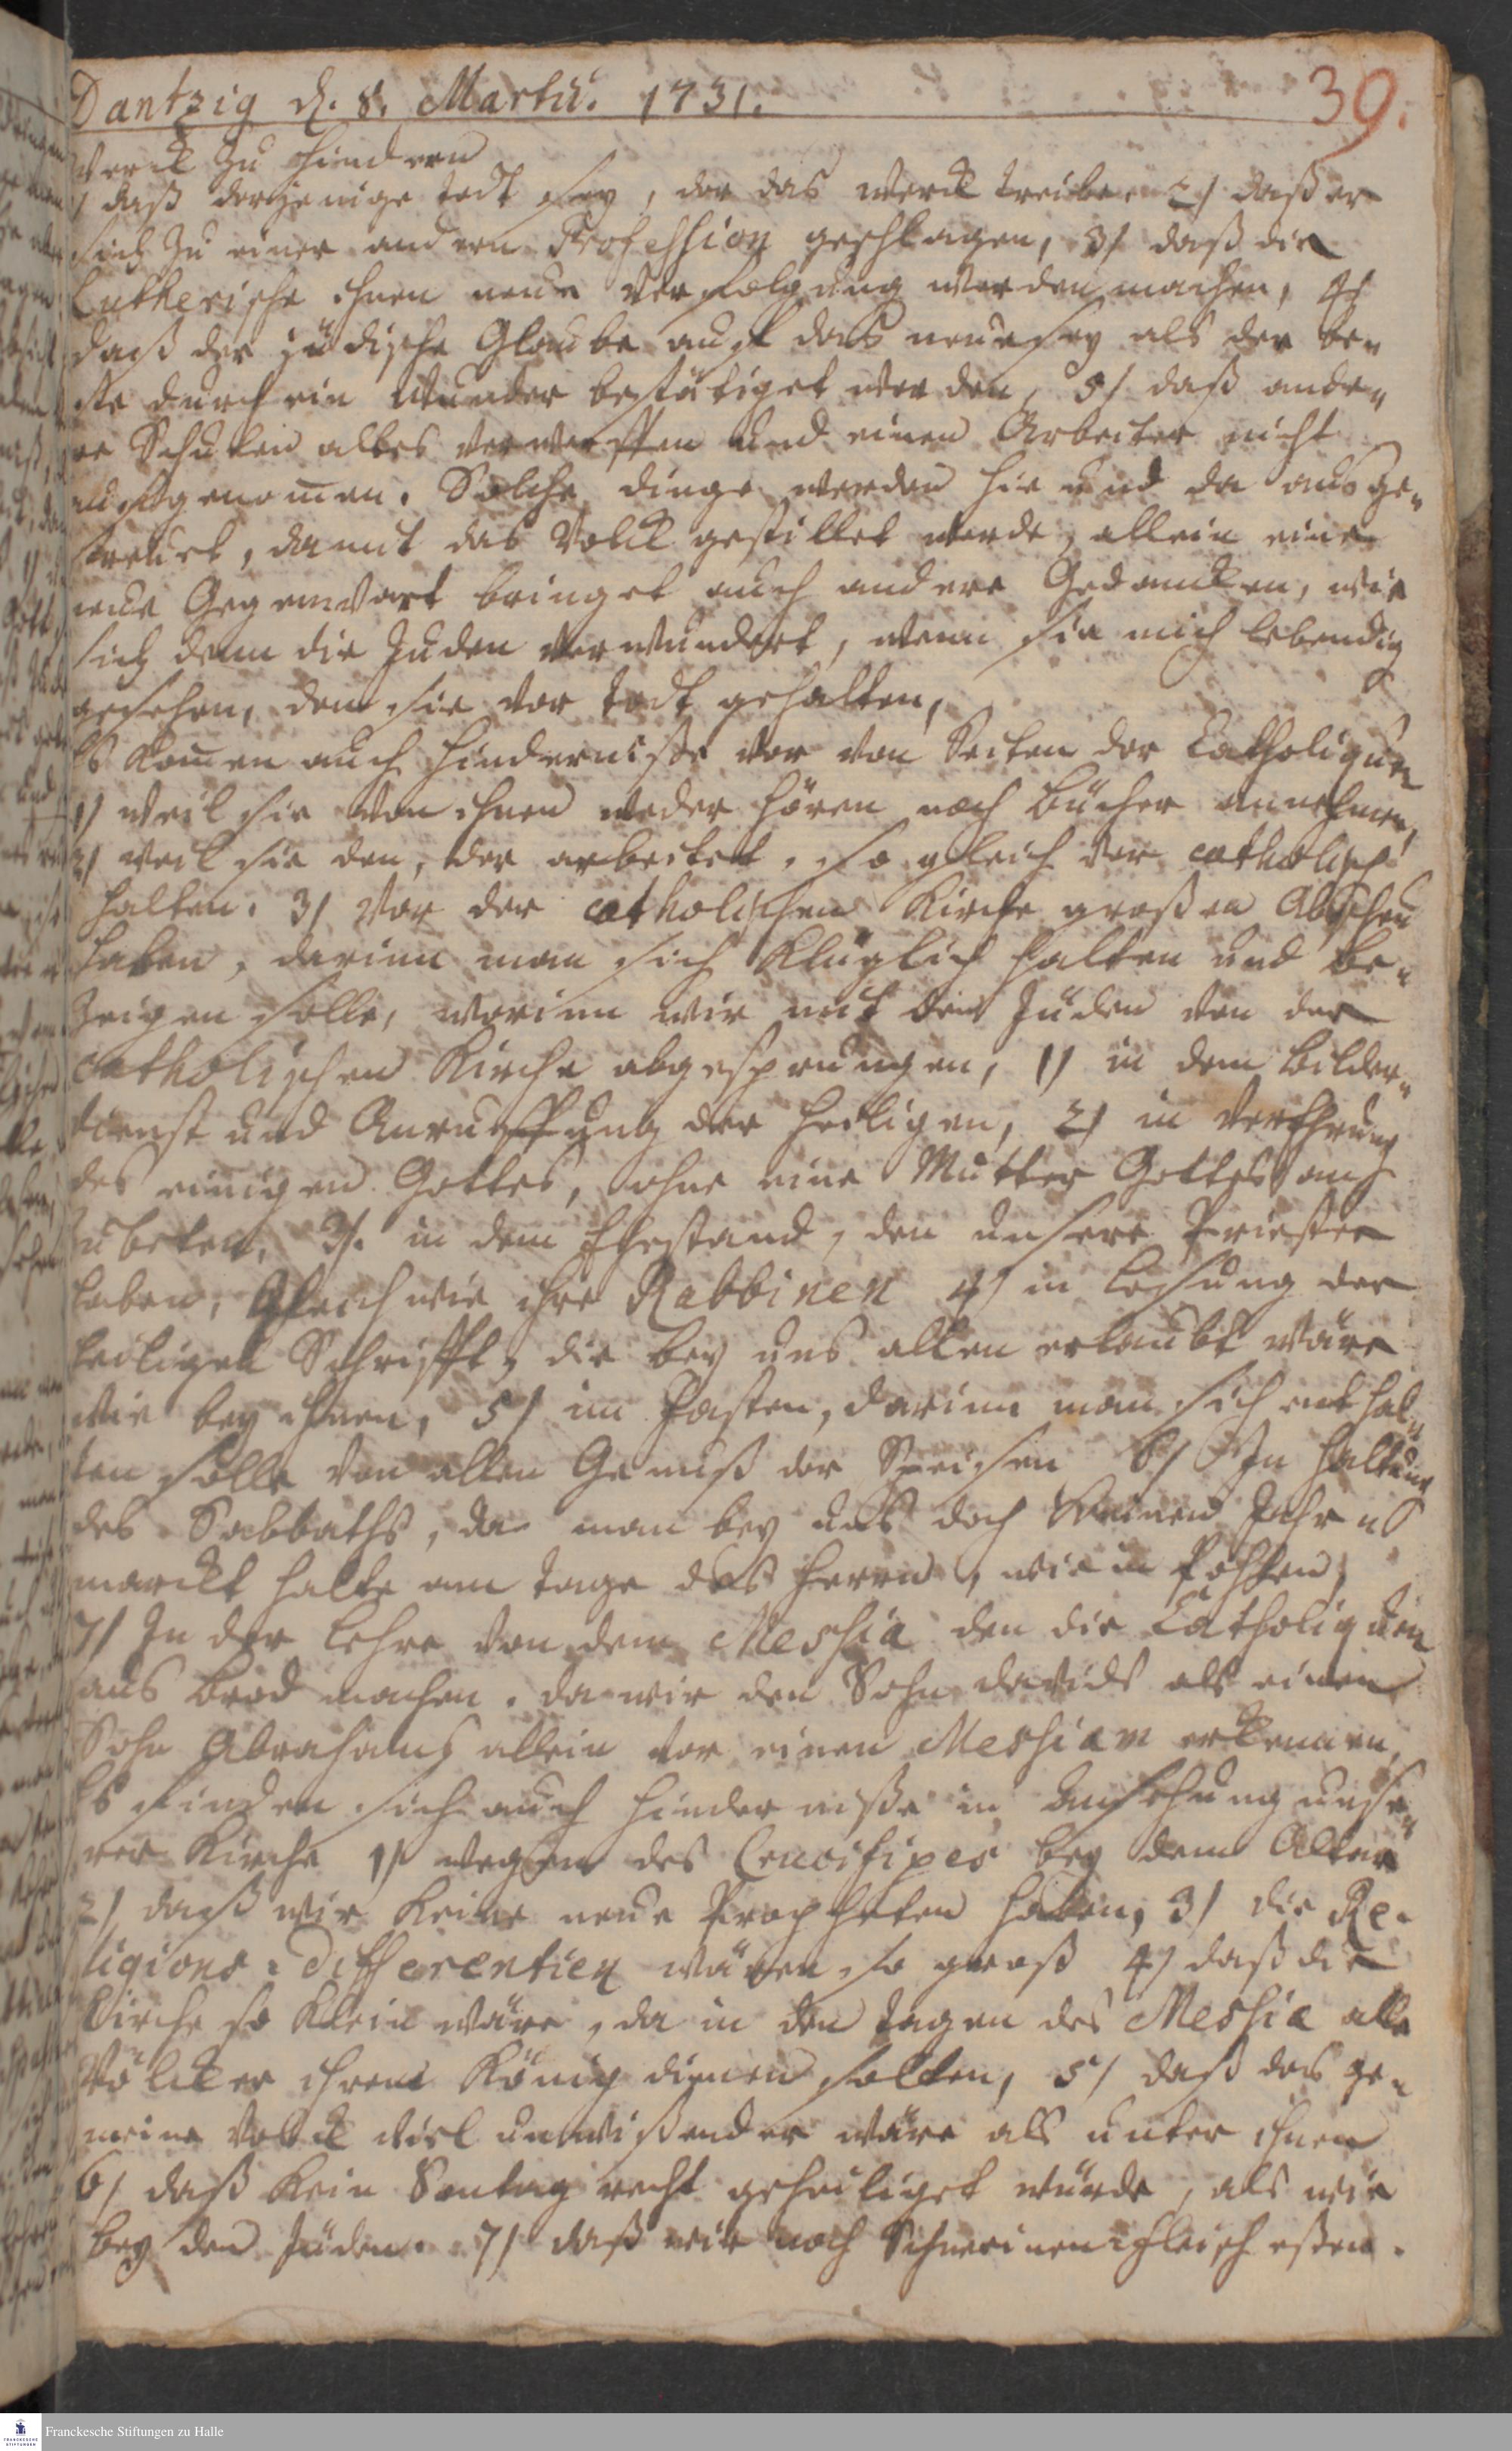 Dantzig d. 8. Martii. 1731.
39.
Werck zu hindern
1/ daß derjenige todt sey, der das Werck treibe 2/ daß er
sich zu einer andern Profession geschlagen, 3/ daß die
Lutherische ihnen neue Verfolgung werden machen, 4/
daß der jüdische Glaube auf das neue sey als der be-
ste durch ein Wunder bestätiget worden, 5/ daß ande-
re Schulen alles verworffen und einen Arbeiter nicht
aufgenomen. Solche dinge werden hie und da ausge-
streuet, damit das Volck gestillet werde, allein eine
neue Gegenwart bringet auch andere Gedancken, wie
sich denn die Juden verwundert, wenn sie mich lebendig
gesehen, den sie vor todt gehalten,
Es komen auch Hinderniße vor von Seiten der Catholiquen
1/ weil sie von ihnen weder hören noch Bücher annehmen,
2/ weil sie den, der arbeitet, so gleich vor catholisch
halten. 3/ Vor der catholischen Kirche großen Abscheu
haben, darinn man sich klüglich halten und be-
zeigen solle, worinn wir mit den Juden von der
catholischen Kirche abgesprungen, 1/ in dem Bilder-
dienst und Anruffung der Heiligen, 2/ in Verehrung
des einigen Gottes, ohne eine Mutter Gottes an
zubeten, 3/. in dem Ehestand, den unsere Priester
haben, gleich wie ihre Rabbinen 4/ in Lesung der
heiligen Schrifft, die bey uns allen erlaubt wäre
wie bey ihnen, 5/ im Fasten, darinn man sich enthal-
ten solle von allen Genuß der Speisen 6/ In Haltung
des Sabbaths, da man bey uns doch keinen Jahr-
marckt halte am Tage des Herrn, wie in Pohlen,
7/ In der Lehre von dem Messia den die Catholiquen
aus Brod machen. da wir den Sohn Davids als einen
Sohn Abrahams allein vor einen Messiam erkennen,
Es finden sich auch Hinderniße in Ansehung unse-
rer Kirche 1/ wegen des Crucifixes bey dem Altar
2/ daß wir keine neue Propheten haben, 3/ die Re-
ligions-Differentien wären so groß 4/ daß die
Kirche so klein wäre, da in den Tagen des Messia alle
Völcker ihrem König dienen solten, 5/ daß das ge-
meine Volck viel unwißender wäre als unter ihnen
6/ daß kein Sontag recht geheiliget würde, als wie
bey den Juden. 7/ daß wir noch Schweinenfleisch eßen.
Franckesche Stiftungen zu Halle